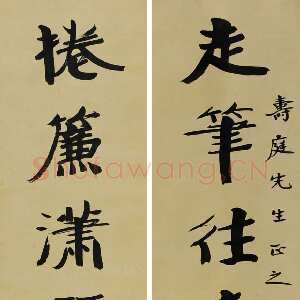 壽庭先生正之
走筆往
捲簾瀟
Shufawang.CN